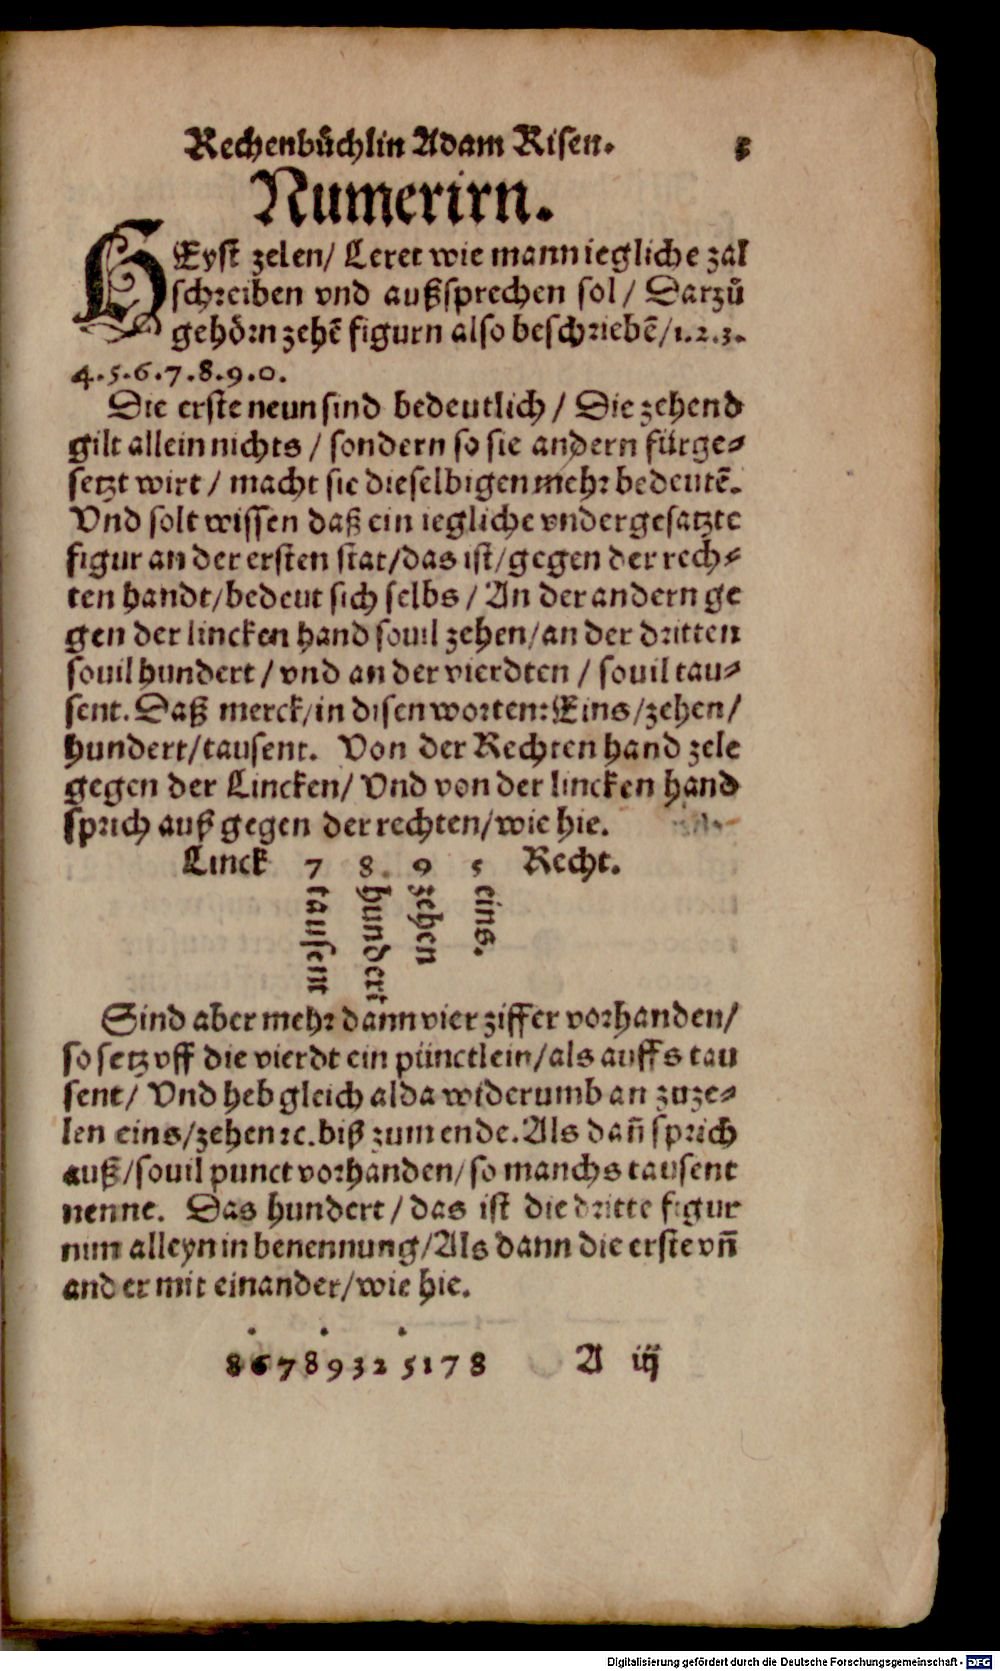 Rechenbuͤchlin Adam Risen. 3
Numerirn.
HEyst zelen/ Leret wie mann iegliche zal
schreiben vnd außsprechen sol/ Darzuͦ
gehoͤrn zehē figurn also beschriebē/1.2.3.
4.5.6.7.8.9.0.
Die erste neun sind bedeutlich/ Die zehend
gilt allein nichts/ sondern so sie andern fürge⸗
setzt wirt/ macht sie dieselbigen mehr bedeutē.
Vnd solt wissen daß ein iegliche vndergesatzte
figur an der ersten stat/das ist/gegen der rech⸗
ten handt/bedeut sich selbs/ An der andern ge
gen der lincken hand souil zehen/an der dritten
souil hundert/ vnd an der vierdten/ souil tau⸗
sent. Daß merck/in disen worten: Eins/zehen/
hundert/tausent. Von der Rechten hand zele
gegen der Lincken/ Vnd von der lincken hand
sprich auß gegen der rechten/wie hie.
Linck 7 8. 9 5 Recht.
tausent hundert zehen eins.
Sind aber mehr dann vier ziffer vorhanden/
so setz vff die vierdt ein pünctlein/als auffs tau
sent/ Vnd heb gleich alda widerumb an zuze⸗
len eins/zehen ⁊c. biß zum ende. Als dañ sprich
auß/souil punct vorhanden/so manchs tausent
nenne. Das hundert/ das ist die dritte figur
nim alleyn in benennung/Als dann die erste vñ
ander mit einander/wie hie.
. . .
86789325178 A iij
Digitalisierung gefördert durch die Deutsche Forschungsgemeinschaft - DFG